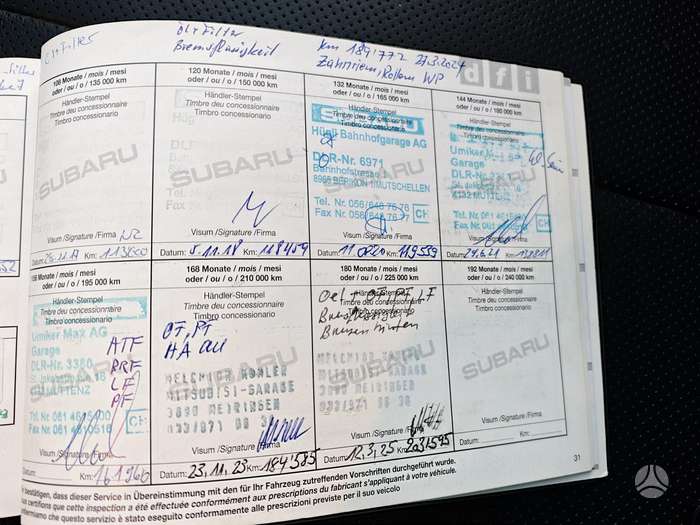 Öl+Filter
Bremsflüssigkeit
Km 189'772 27.3.2024
Zahnriemen, Rollen WP
dfi
108 Monate / mois / mesi
oder / ou / o / 135 000 km
Händler-Stempel
Timbre du concessionnaire
Timbro concessionario
SUBARU
Visum /Signature /Firma
Datum: Km: 113600
120 Monate / mois / mesi
oder / ou / o / 150 000 km
Händler-Stempel
Timbre du concessionnaire
Timbro concessionario
SUBARU
Visum /Signature /Firma
Datum: 5.11.18 Km: 118459
132 Monate / mois / mesi
oder / ou / o / 165 000 km
Händler-Stempel
Timbre du concessionnaire
Timbro concessionario
SUBARU
Hügli Bahnhofgarage AG
DLR-Nr. 6971
Bahnhofstrasse
8965 BERIKON 1/MUTSCHELLEN
Tel. Nr. 056/648 76 76
Fax Nr. 056/648 76 77
CH
Visum /Signature /Firma
Datum: Km: 119539
144 Monate / mois / mesi
oder / ou / o / 180 000 km
Händler-Stempel
Timbre du concessionnaire
Timbro concessionario
SUBARU
Umiker Max AG
Garage
4132 MUTTENZ
CH
Visum /Signature /Firma
Datum: 29.6.21 Km:
156 Monate / mois / mesi
oder / ou / o / 195 000 km
Händler-Stempel
Timbre du concessionnaire
Timbro concessionario
Umiker Max AG
Garage
DLR-Nr. 3380
St. Jakobstrasse
MUTTENZ
ATF
RRF
LF
PF
Tel. Nr. 061
Fax Nr. 061
CH
Visum /Signature /Firma
161966
168 Monate / mois / mesi
oder / ou / o / 210 000 km
Händler-Stempel
Timbre du concessionnaire
Timbro concessionario
SUBARU
HA
MELCHIOR KOHLER
MITSUBISI-GARAGE
3860 MEIRINGEN
033/971 88 38
Visum /Signature /Firma
Datum: 23,11,23 Km: 184585
180 Monate / mois / mesi
oder / ou / o / 225 000 km
Händler-Stempel
Timbre du concessionnaire
Timbro concessionario
Bremsen hinten
MELCHIOR KOHLER
MITSUBISI-GARAGE
3860 MEIRINGEN
033/971 88 38
Visum /Signature /Firma
Datum: 12,3,25 Km: 203595
192 Monate / mois / mesi
oder / ou / o / 240 000 km
Händler-Stempel
Timbre du concessionnaire
Timbro concessionario
SUBARU
Visum /Signature /Firma
Datum: Km:
31
bestätigen, dass dieser Service in Übereinstimmung mit den für Ihr Fahrzeug zutreffenden Vorschriften durchgeführt wurde.
certifions que cette inspection a été effectuée conformément aux prescriptions du fabricant s'appliquant à votre véhicule.
confermiamo che questo servizio è stato eseguito conformemente alle prescrizioni previste per il suo veicolo